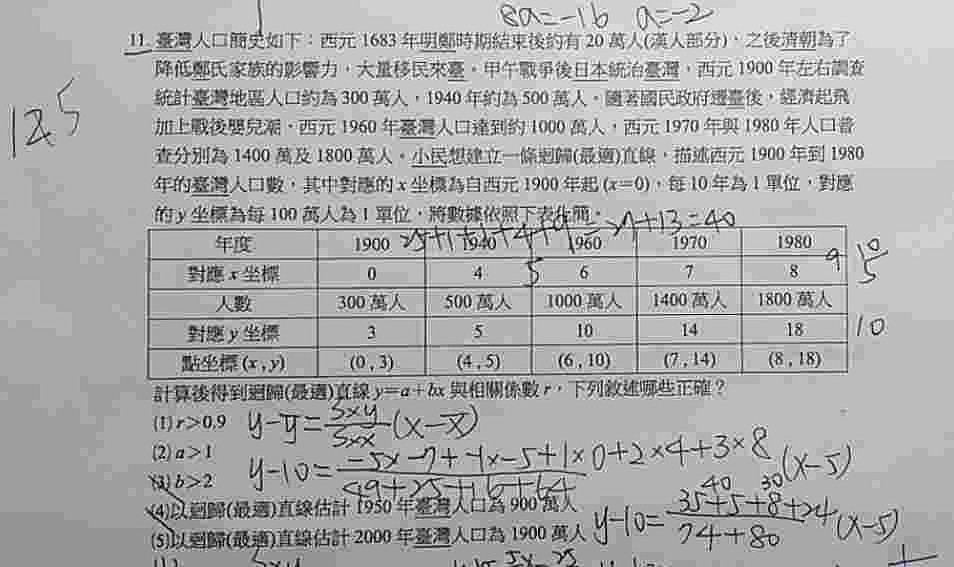 8a=-16 a=-2
11. 臺灣人口簡史如下：西元 1683 年明鄭時期結束後約有 20 萬人(漢人部分)，之後清朝為了
降低鄭氏家族的影響力，大量移民來臺。甲午戰爭後日本統治臺灣，西元 1900 年左右調查
統計臺灣地區人口約為 300 萬人，1940 年約為 500 萬人。隨著國民政府遷臺後，經濟起飛
加上戰後嬰兒潮，西元 1960 年臺灣人口達到約 1000 萬人，西元 1970 年與 1980 年人口普
125
查分別為 1400 萬及 1800 萬人。小民想建立一條迴歸(最適)直線，描述西元 1900 年到 1980
年的臺灣人口數，其中對應的 x 坐標為自西元 1900 年起 (x=0)，每 10 年為 1 單位，對應
的 y 坐標為每 100 萬人為 1 單位，將數據依照下表化簡。
年度 1900 1940 1960 1970 1980
對應 x 坐標 0 4 6 7 8
5
人數 300 萬人 500 萬人 1000 萬人 1400 萬人 1800 萬人
對應 y 坐標 3 5 10 14 18 10
點坐標 (x , y) (0 , 3) (4 , 5) (6 , 10) (7 , 14) (8 , 18)
計算後得到迴歸(最適)直線 y=a+bx 與相關係數 r，下列敘述哪些正確？
(1) r>0.9
(2) a>1
(3) b>2
(4)以迴歸(最適)直線估計 1950 年臺灣人口為 900 萬人
(5)以迴歸(最適)直線估計 2000 年臺灣人口為 1900 萬人